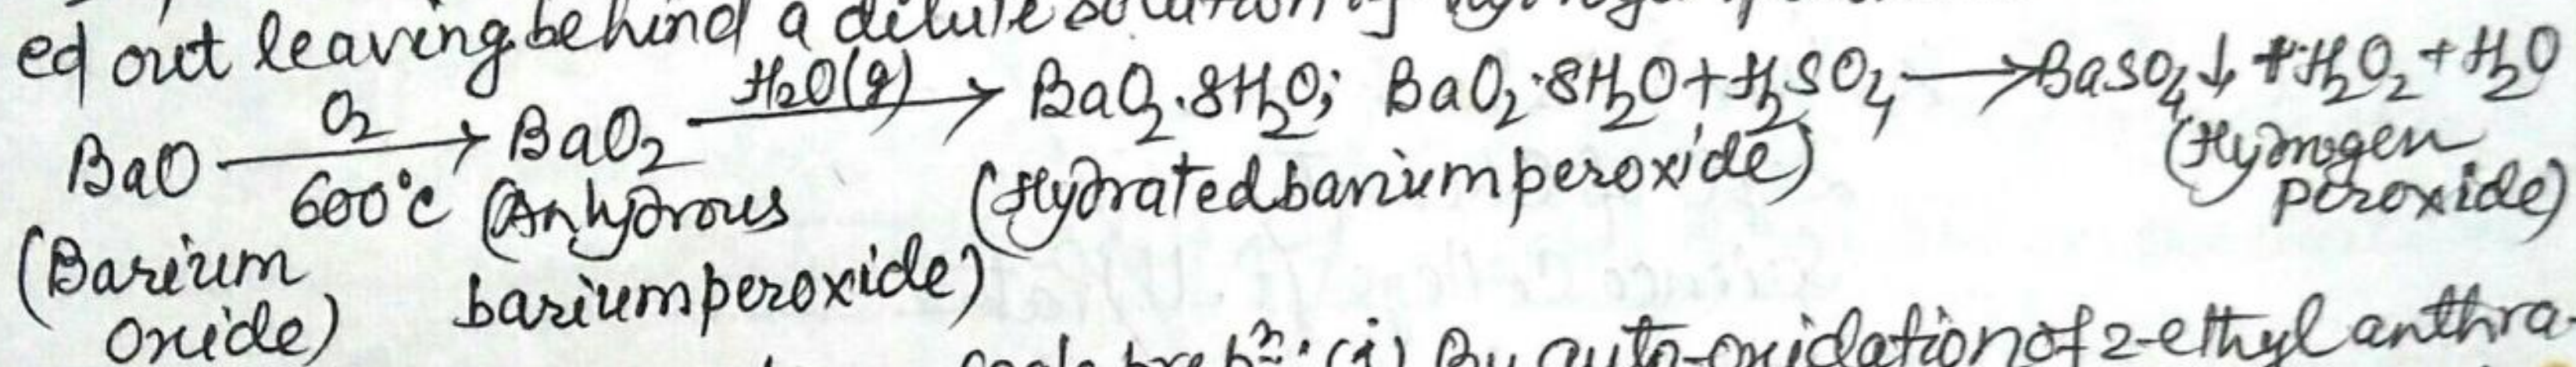 ed out leaving behind a dilute solution of
BaO —O₂/600°C→ BaO₂ —H₂O(g)→ BaO₂.8H₂O; BaO₂.8H₂O + H₂SO₄ → BaSO₄↓ + H₂O₂ + H₂O
(Barium oxide) (Anhydrous barium peroxide) (Hydrated barium peroxide) (Hydrogen peroxide)
(i) By auto-oxidation of 2-ethyl anthra-